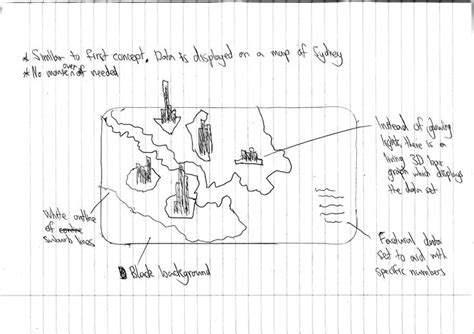 * Similar to first concept. Data is displayed on a map of Sydney
* No over needed
Instead of glowing
lights, there is a
living 3D bar
graph which displays
the data set
White outline
of centre
suburb lines
Black background
Factural data
set to aid with
specific numbers